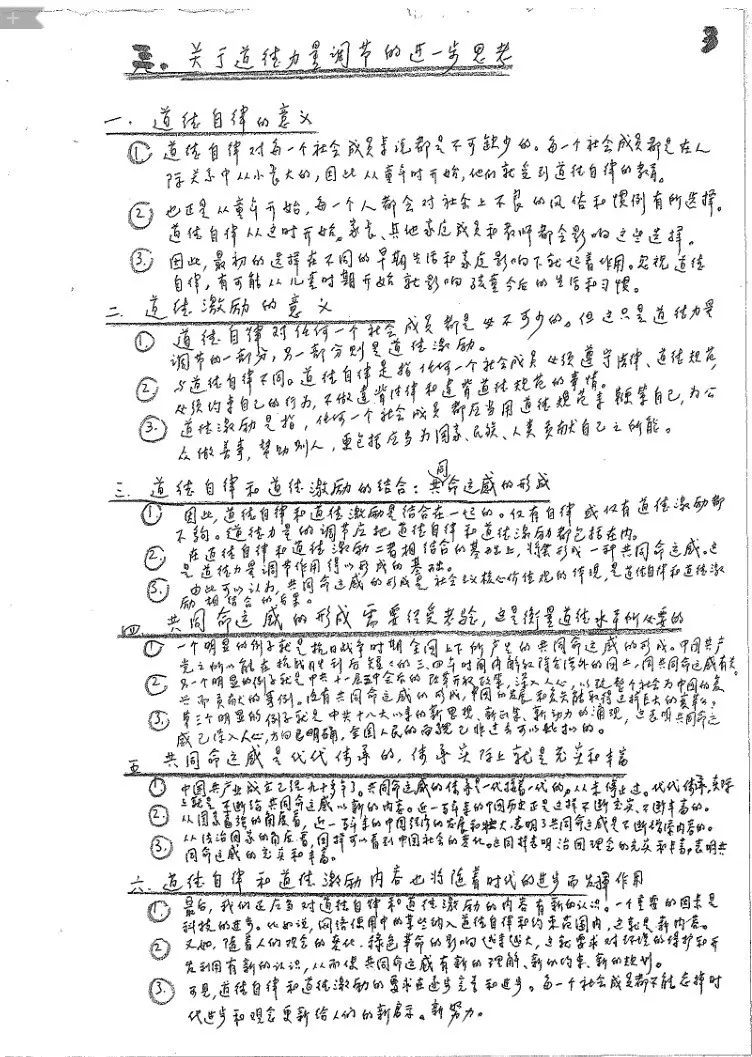 3
三、关于道德力量调节的进一步思考
一、道德自律的意义
① 道德自律对每一个社会成员来说都是不可缺少的。每一个社会成员都是在人
际关系中从小长大的,因此从童年时开始,他们就受到道德自律的教育。
② 也正是从童年开始,每一个人都会对社会上不良的风俗和惯例有所选择。
道德自律从这时开始。家长、其他家庭成员和教师都会影响这些选择。
③ 因此,最初的选择在不同的早期生活和家庭影响下就起着作用。忽视道德
自律,有可能从儿童时期开始就影响孩童今后的生活和习惯。
二、道德激励的意义
① 道德自律对任何一个社会成员都是必不可少的。但这只是道德力量
调节的一部分,另一部分则是道德激励。
② 与道德自律不同。道德自律是指任何一个社会成员必须遵守法律、道德规范,
必须约束自己的行为,不做违背法律和违背道德规范的事情。
③ 道德激励是指,任何一个社会成员都应当用道德规范来鞭策自己,为公
众做善事,帮助别人,更包括应当为国家、民族、人类贡献自己之所能。
三、道德自律和道德激励的结合:共同命运感的形成
① 因此,道德自律和道德激励是结合在一起的。仅有自律或仅有道德激励都
不够。道德力量的调节应把道德自律和道德激励都包括在内。
② 在道德自律和道德激励二者相结合的基础上,将会形成一种共同命运感。这
是道德力量调节作用得以形成的基础。
③ 由此可以认为,共同命运感的形成是社会主义核心价值观的体现,是道德自律和道德激
励相结合的后果。
四、共同命运感的形成需要经受考验,这是衡量道德水平所必要的
① 一个明显的例子就是抗日战争时期全国上下所产生的共同命运感的形成。中国共产
党之所以能在抗战胜利后短短的三、四年时间内解放除台湾外的国土,同共同命运感有关。
② 另一个明显的例子就是中共十一届三中全会后的改革开放政策,深入人心,以致整个社会为中国的复
兴而贡献的事例。没有共同命运感的形成,中国的发展和复兴能取得这样巨大的变革么?
③ 第三个明显的例子就是中共十八大以来的新思想、新政策、新动力的涌现,这表明共同命运
感已深入人心,方向已明确,全国人民的面貌已非过去可以比拟的。
五、共同命运感是代代传承的,传承实际上就是充实和丰富
① 中国共产党成立已经九十多年了。共同命运感的传承是一代接着一代的,从未停止过。代代传承,实际
上就是不断给共同命运感以新的内容。近一百年来的中国历史正是这样不断充实、不断丰富的。
② 从国家富强的角度看,近一百年来的中国经济的发展和壮大,表明了共同命运感是不断增添内容的。
③ 从法治国家的角度看,同样可以看到中国社会的变化。这同样表明治国理念的充实和丰富,表明共
同命运感的充实和丰富。
六、道德自律和道德激励内容也将随着时代的进步而发挥作用
① 最后,我们还应当对道德自律和道德激励的内容有新的认识。一个重要的因素是
科技的进步。比如说,网络使用中的某些纳入道德自律和约束范围内,这就是新内容。
② 又如,随着人的观念的变化,绿色革命的影响越来越大,这就要求对环境的保护和开
发利用有新的认识,从而使共同命运感有新的理解、新的约束、新的规划。
③ 可见,道德自律和道德激励的要求在逐步完善和进步。每一个社会成员都不能忘掉时
代进步和观念更新给人们的新启示、新努力。